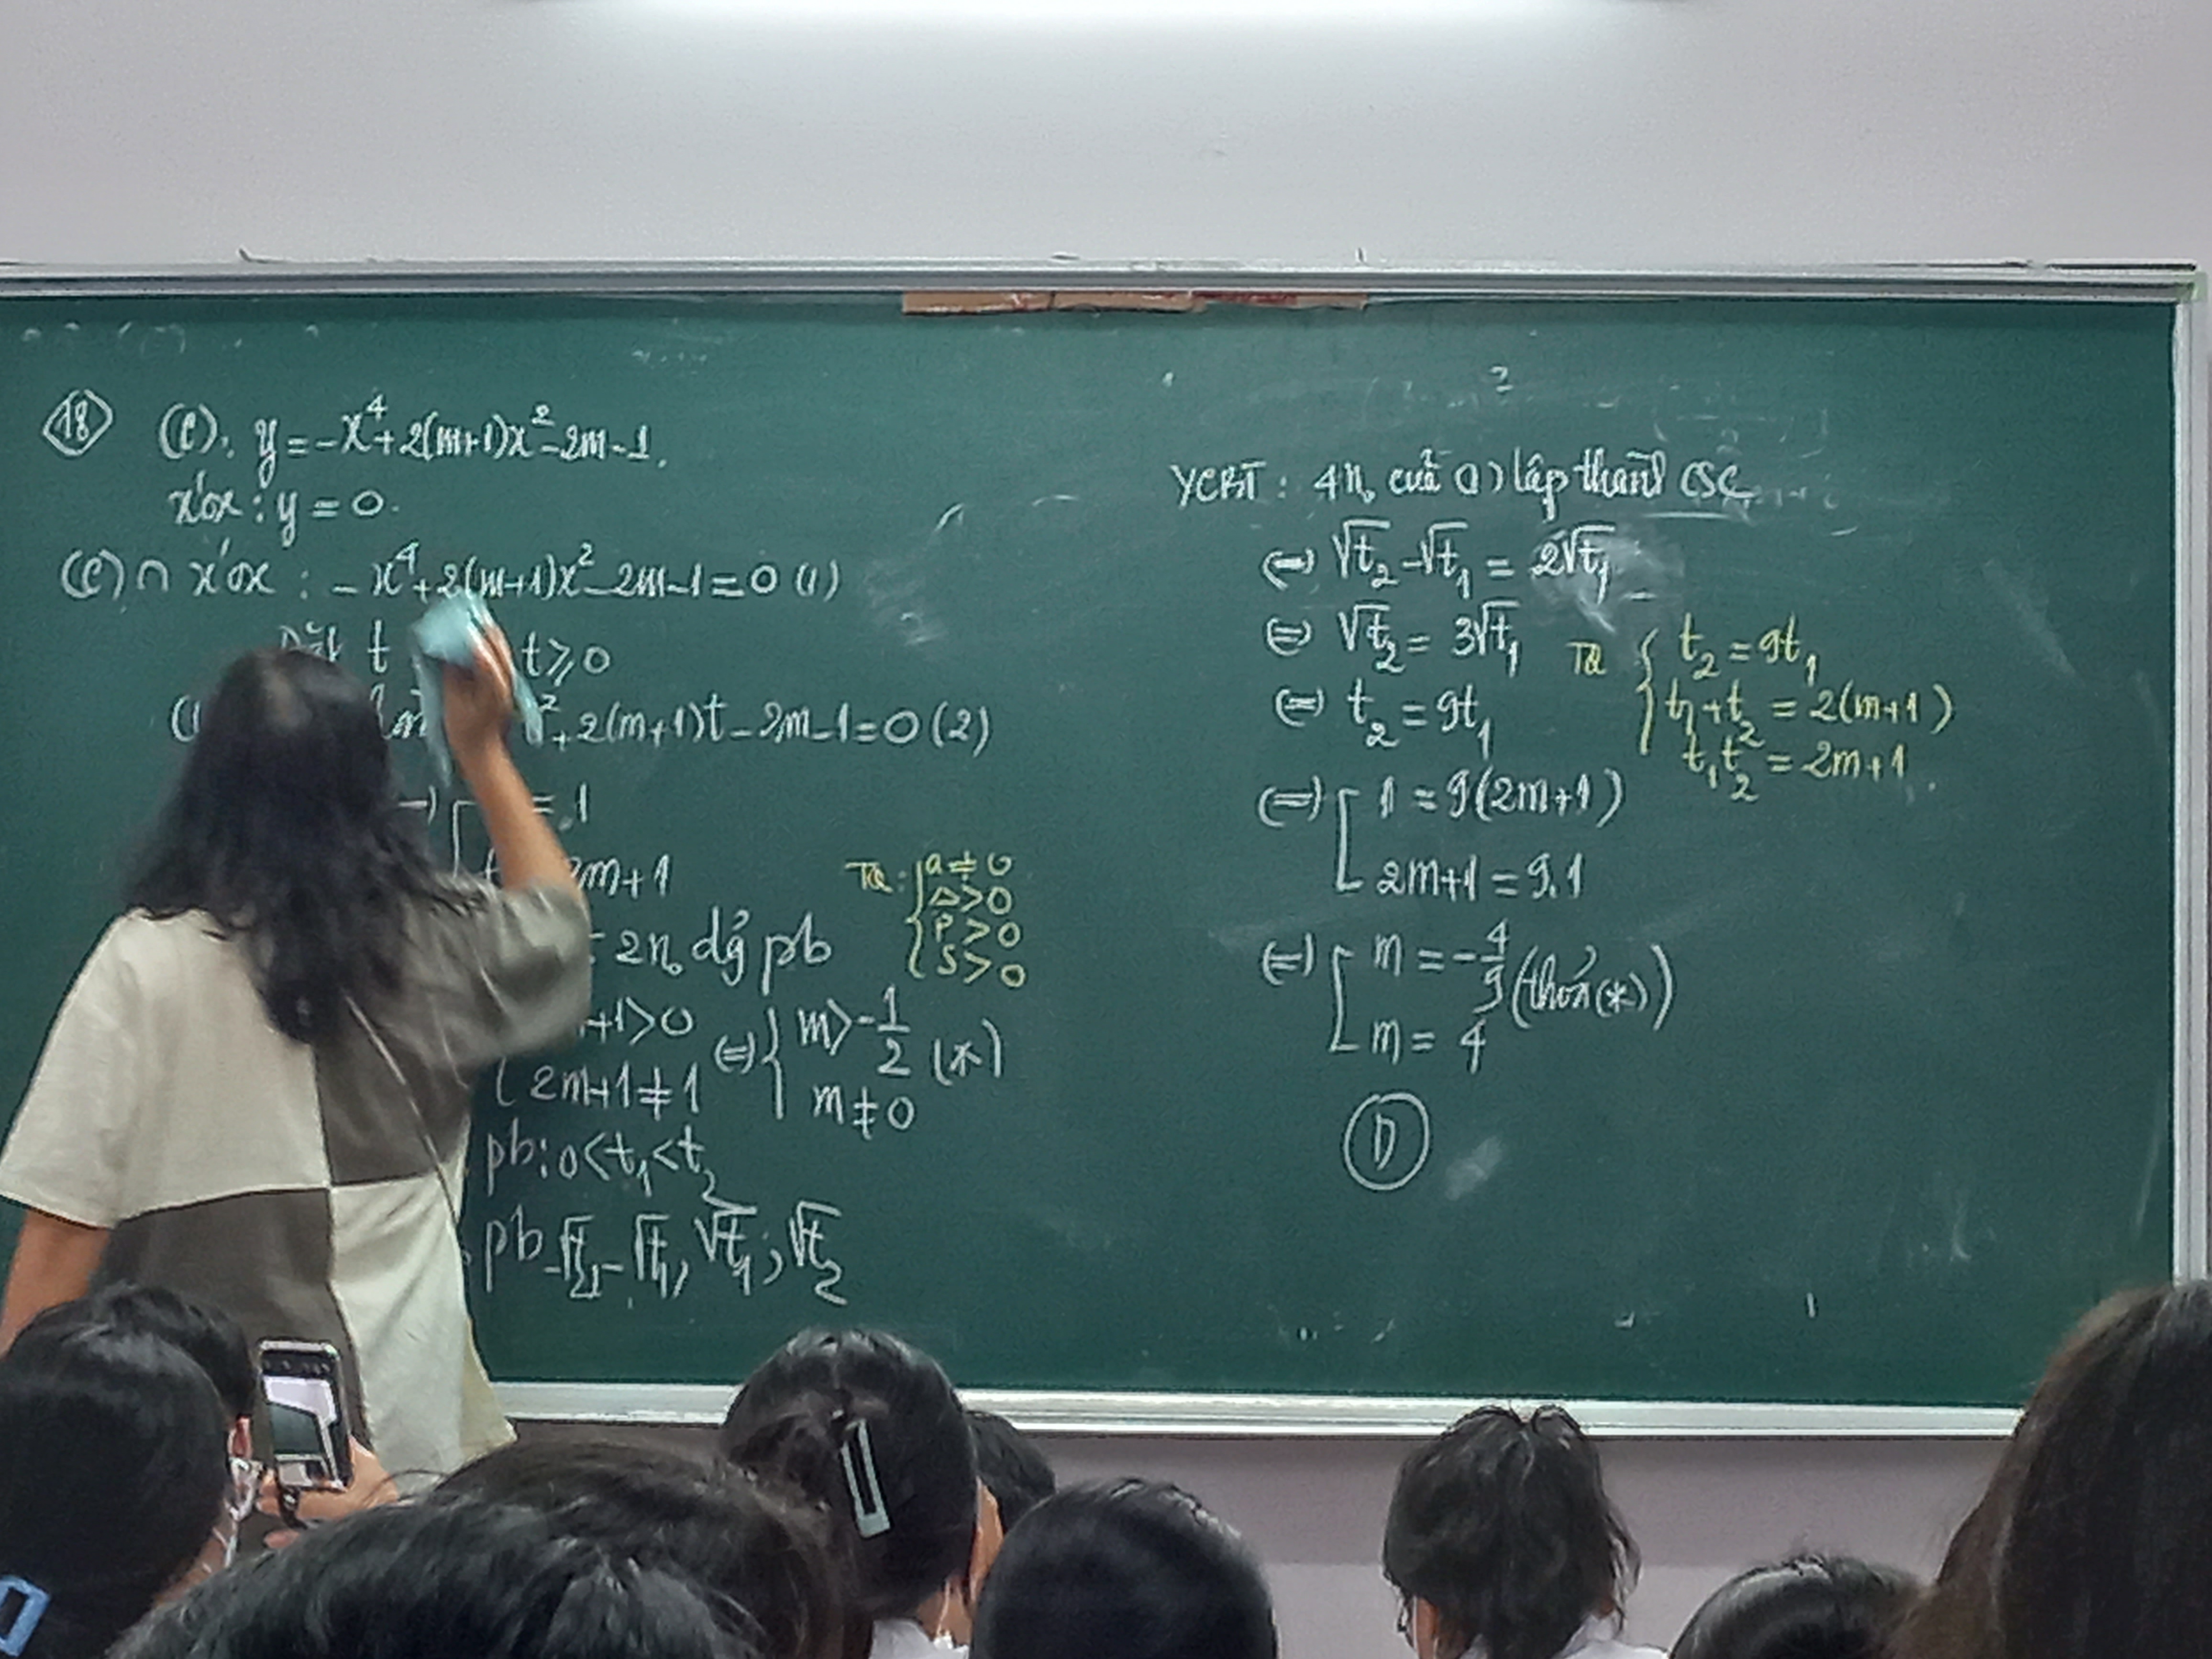 18 (C): y = -x⁴ + 2(m+1)x² - 2m - 1.
x'ox : y = 0.
(C) ∩ x'ox : -x⁴ + 2(m+1)x² - 2m - 1 = 0 (1)
Đặt t t ⩾ 0
² + 2(m+1)t - 2m - 1 = 0 (2)
= 1
2m+1
2n₀ dg pb
TQ: { a ≠ 0
Δ > 0
P > 0
S > 0
+1 > 0
2m+1 ≠ 1
⇔ { m > -1/2 (*)
m ≠ 0
pb: 0 < t₁ < t₂
pb -√t₂, -√t₁, √t₁; √t₂
YCBT : 4n₀ của (1) lập thành CSC
⇔ √t₂ - √t₁ = 2√t₁
⇔ √t₂ = 3√t₁
⇔ t₂ = 9t₁
TQ { t₂ = 9t₁
t₁ + t₂ = 2(m+1)
t₁t₂ = 2m+1.
⇔ [ 1 = 9(2m+1)
2m+1 = 9.1
⇔ [ m = -4/9 (thỏa (*))
m = 4
D